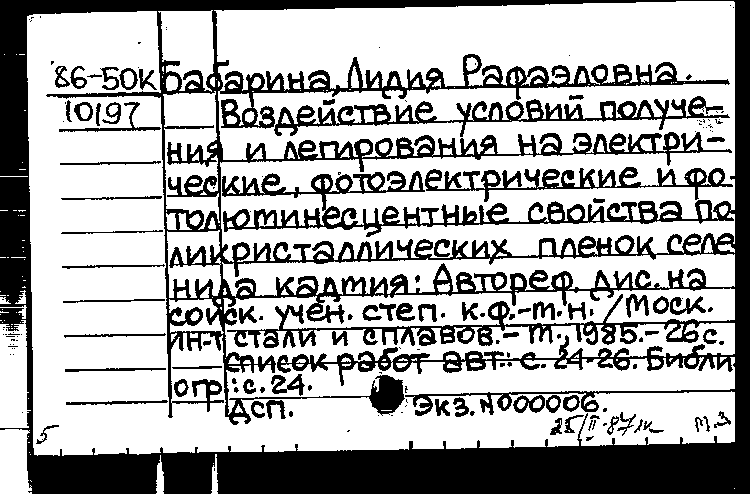 86-50К Бабарина, Лидия Рафаэловна.
10197 Воздействие условий получе-
ния и легирования на электри-
ческие, фотоэлектрические и фо-
толюминесцентные свойства по-
ликристаллических пленок селе
нида кадмия: Автореф. дис. на
соиск. учен. степ. к.ф.-м.н. / Моск.
ин-т стали и сплавов. - М., 1985. - 26 с.
Список работ авт.: с. 24-26. Библи
огр.: с. 24.
Дсп. Экз. N000006.
25/II-87 М.З.
5